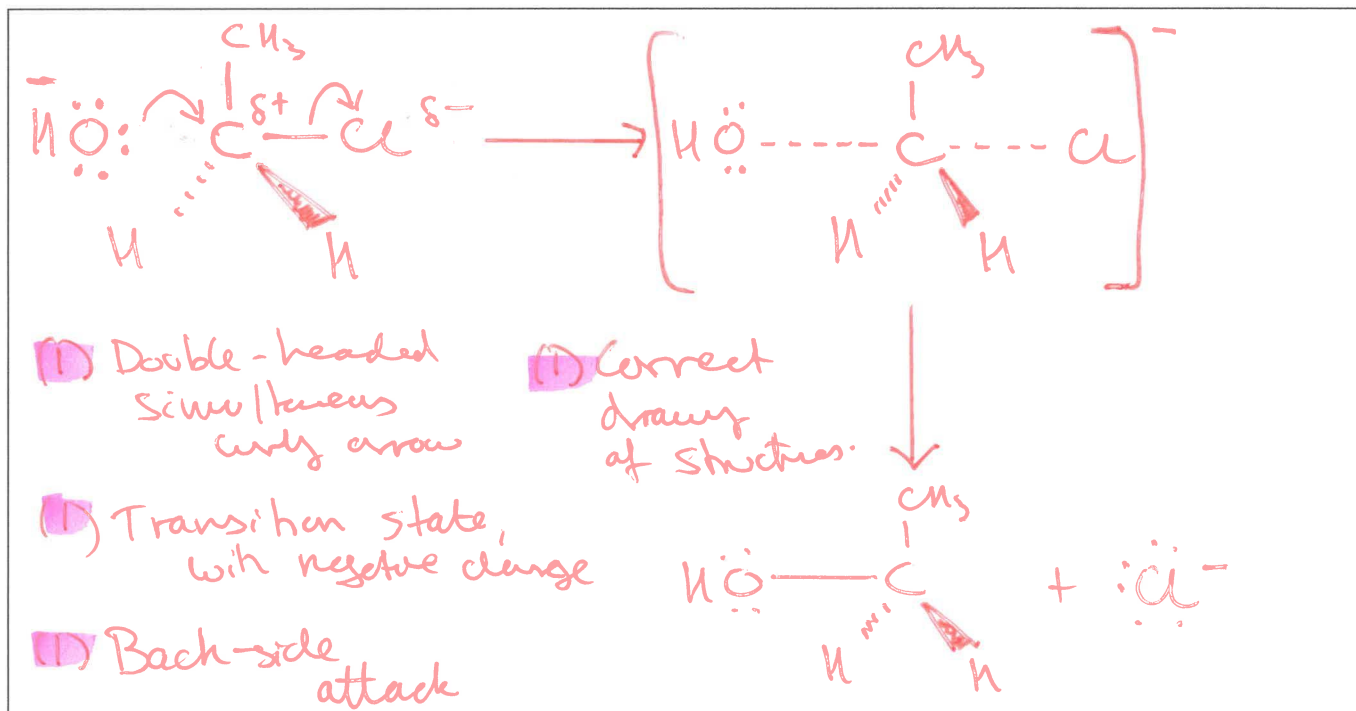 CH₃ CH₃
HÖ:⁻ C δ+ Cl δ− [HÖ ----- C ---- Cl]⁻
H H H H
(1) Double-headed
simultaneous
curly arrow
(1) Correct
drawing
of structures.
(1) Transition state,
with negative charge
(1) Back-side
attack
CH₃
HÖ C + :Cl⁻
H H